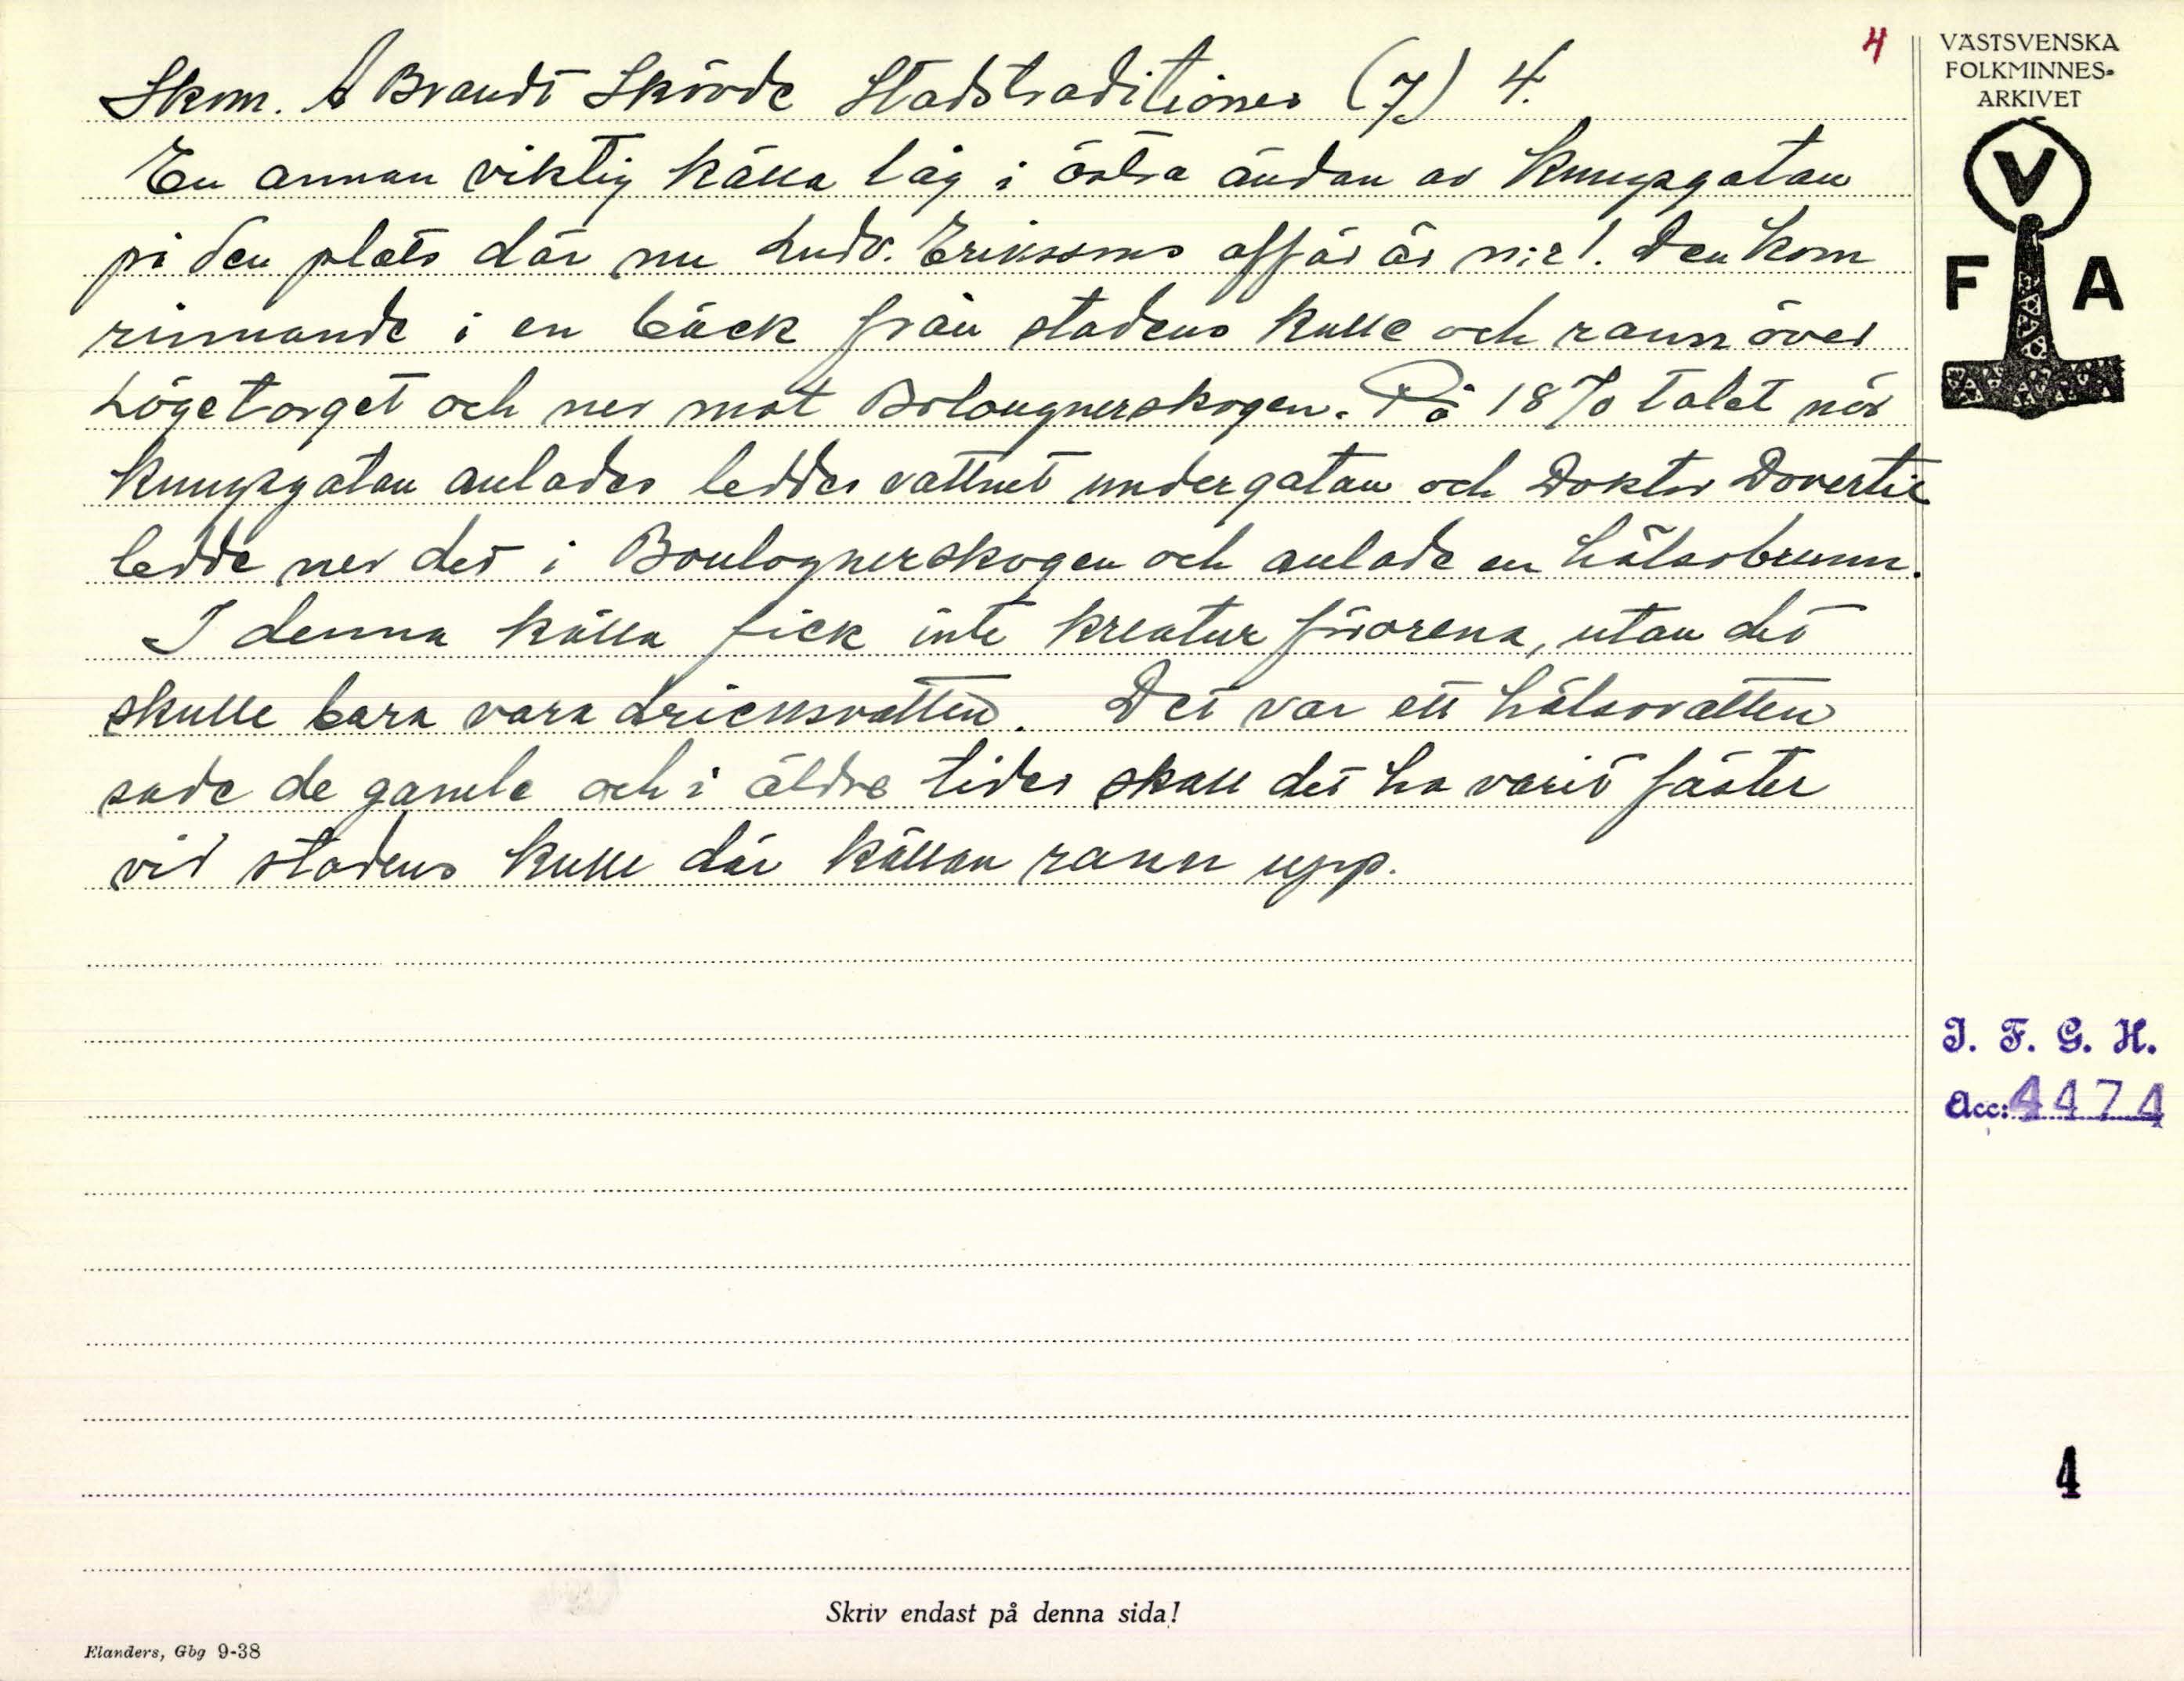 Skom. A Brandt Skövde Stadstraditioner (7) 4.
4
En annan viktig källa låg i östra ändan av Kungsgatan
på den plats där nu Ludv. Erikssons affär är n:r 1. Den kom
rinnande i en bäck från stadens kulle och rann över
Högetorget och ner mot Bolougnerskogen. På 1870 talet när
Kungsgatan anlades leddes vattnet under gatan och Doktor Dovertie
ledde ner det i Boulognerskogen och anlade en hälsobrunn.
I denna källa fick inte kreatur förorena, utan det
skulle bara vara dricksvatten. Det var ett hälsovatten
sade de gamle och i äldre tider skall det ha varit fäster
vid stadens kulle där källan rann upp.
VÄSTSVENSKA
FOLKMINNES-
ARKIVET
V
F A
I. F. G. H.
Acc: 4474
4
Skriv endast på denna sida!
Elanders, Gbg 9-38